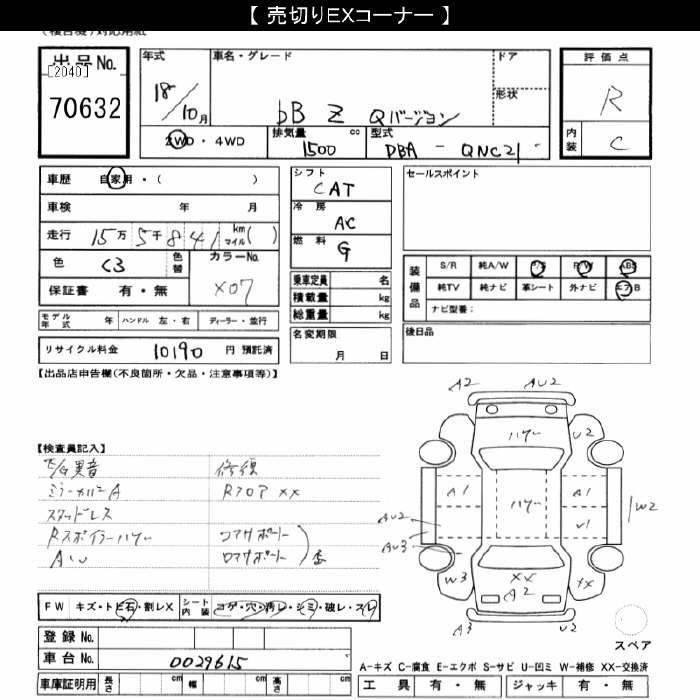 【 売切りEXコーナー 】
出品No.
[2040]
70632
年式
18/10月
車名・グレード
bB Z Qバージョン
ドア
形状
評価点
R
内装
C
2WD・4WD
排気量 cc
1500
型式
DBA - QNC21-
車歴 自家用・( )
車検 年 月
走行 15万 5千 8 4 1 km マイル( )
色 C3 色替
カラーNo.
X07
保証書 有・無
モデル年式 年 ハンドル 左・右 ディーラー・並行
リサイクル料金 10190 円 預託済
シフト
CAT
冷房
AC
燃料
G
乗車定員 名
積載量 kg
総重量 kg
名変期限
月 日
セールスポイント
装備品
S/R 純A/W P/S P/W ABS
純TV 純ナビ 革シート 外ナビ エアB
ナビ型番:
後日品
【出品店申告欄(不良箇所・欠品・注意事項等)】
【検査員記入】
修復
ミラーカバーA
Rフロア XX
スタッドレス
Rスポイラーハゲー
コアサポート
ロアサポート
A2 AU2
ハゲー
U2
A1 ハゲー A1
AU2
U1
W2
AU3
W3 XX XX
A2
A3 U2
スペア
FW キズ・トビ石・割レX シート内装 コゲ・穴・汚レ・シミ・破レ・スレ
登録 No.
車台 No. 0029615
車庫証明用 長さ cm 幅 cm 高さ cm
A-キズ C-腐食 E-エクボ S-サビ U-凹ミ W-補修 XX-交換済
工具 有・無 ジャッキ 有・無